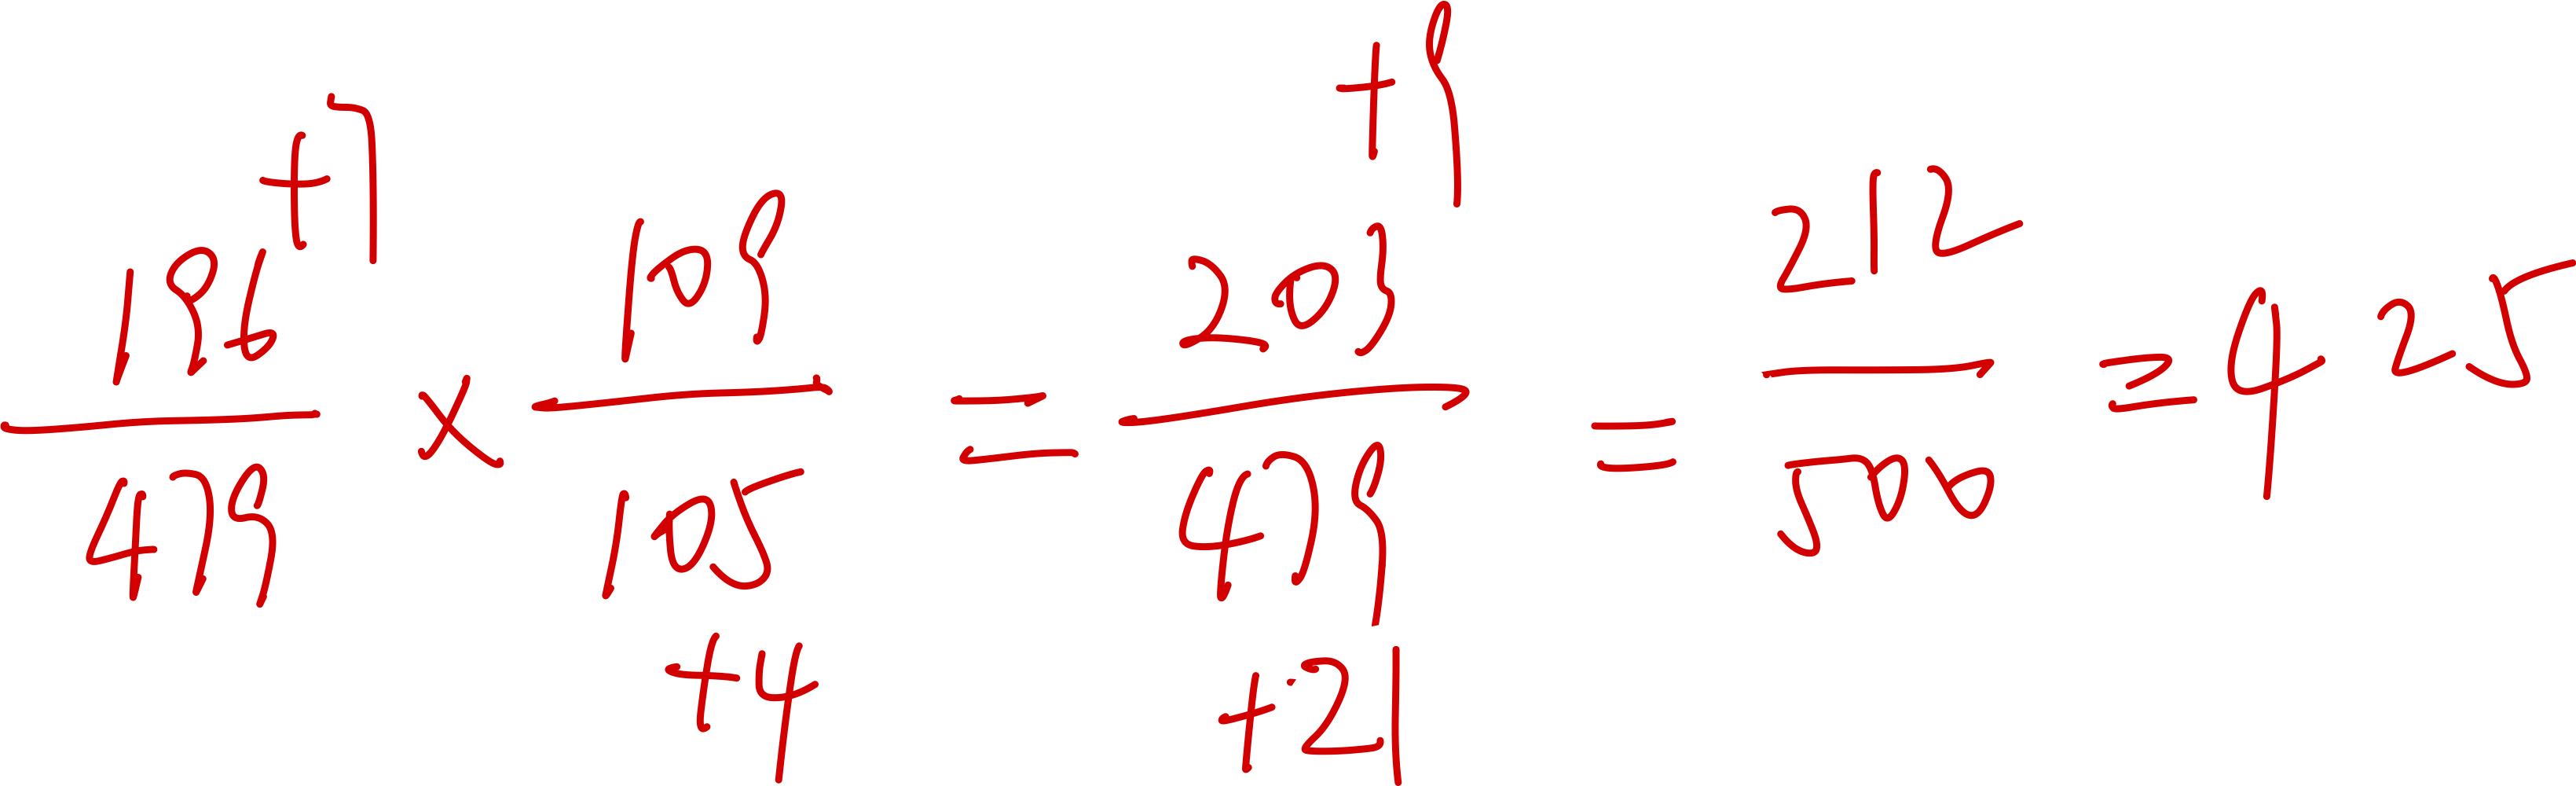 196+7/479 × 109/105+4 = 203+9/479+21 = 212/500 = 425